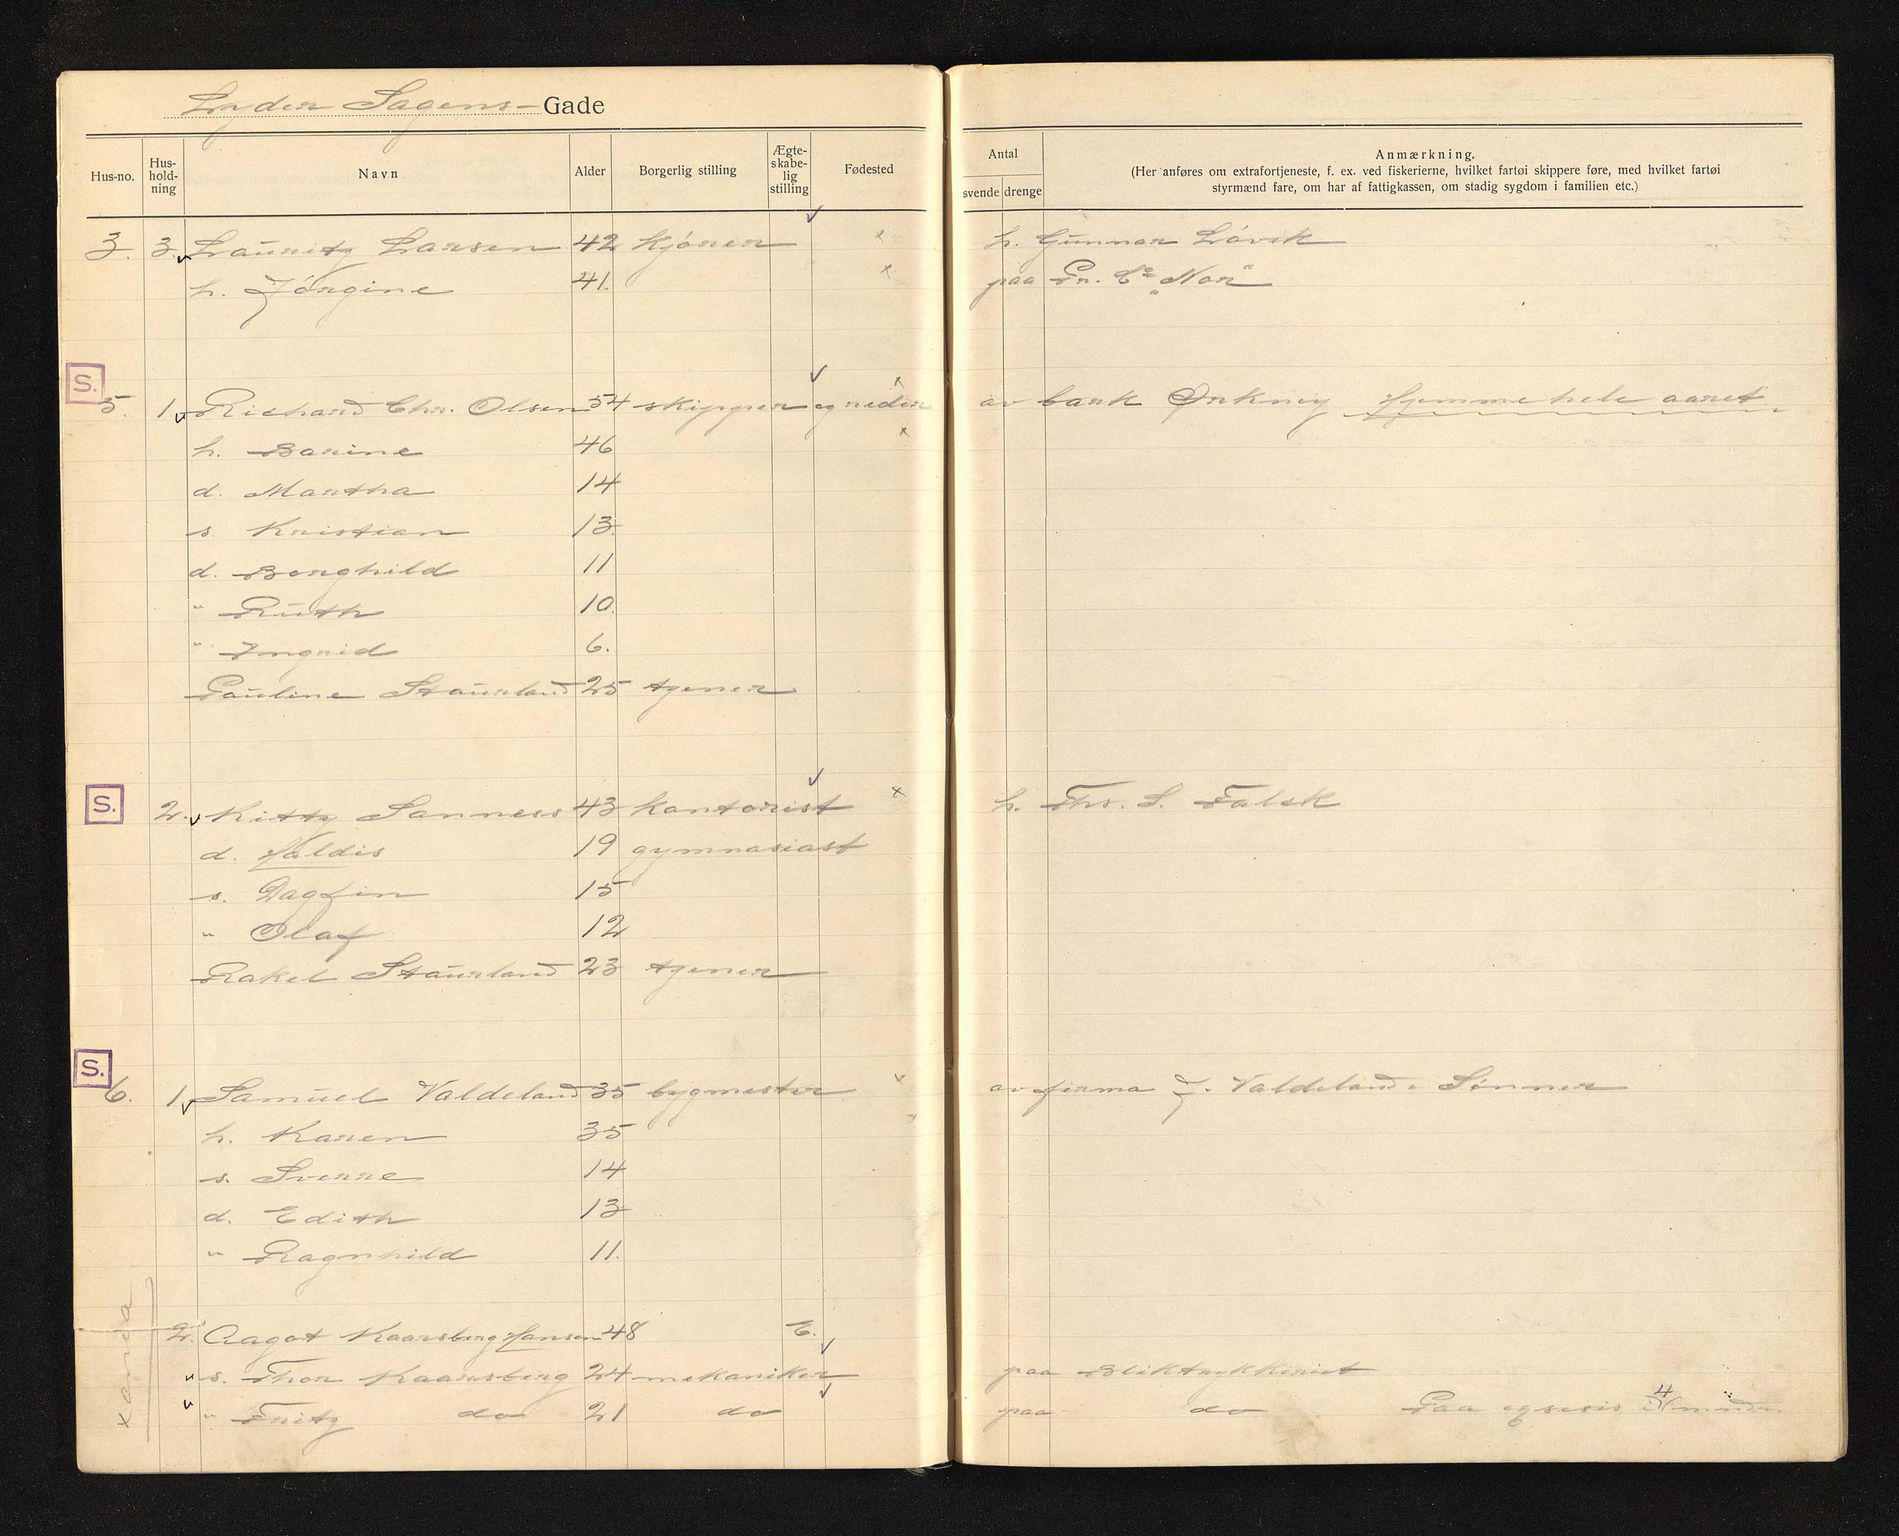 Lyder Sagens- Gade
Hus-no. Hus-hold-ning Navn Alder Borgerlig stilling Ægte-skabe-lig stilling Fødested Antal svende drenge Anmærkning.
(Her anføres om extrafortjeneste, f. ex. ved fiskerierne, hvilket fartøi skippere føre, med hvilket fartøi
styrmænd fare, om har af fattigkassen, om stadig sygdom i familien etc.)
3. 3. Lauritz Larsen 42 kjører x h. Gunnar Løvik
h. Jørgine 41. x paa Pr. Co „Nor"
S.
5. 1. Richard Chr. Olsen 54 skipper og reder x av bark Orkney Hjemme hele aaret
h. Barine 46 x
d. Martha 14
s. Kristian 13.
d. Borghild 11
" Ruth 10.
" Ingrid 6.
Pauline Staurland 25 tjener
S.
2. Kitty Sanness 43 kontorist x h. Ths. S. Falck
d. Haldis 19 gymnasiast
s. Dagfin 15
" Olaf 12
Rakel Staurland 23 tjener
S.
6. 1. Samuel Valdeland 35 bygmester x av firma J. Valdeland & Sønner
h. Karen 35
s. Sverre 14
d. Edith 13
" Ragnhild 11.
2. Aagot Kaarsberg Hansen 48 E.
" s. Thor Kaarsberg 24 mekaniker paa Bliktrykkeriet
" " Fritz do 21 do paa do Paa 4